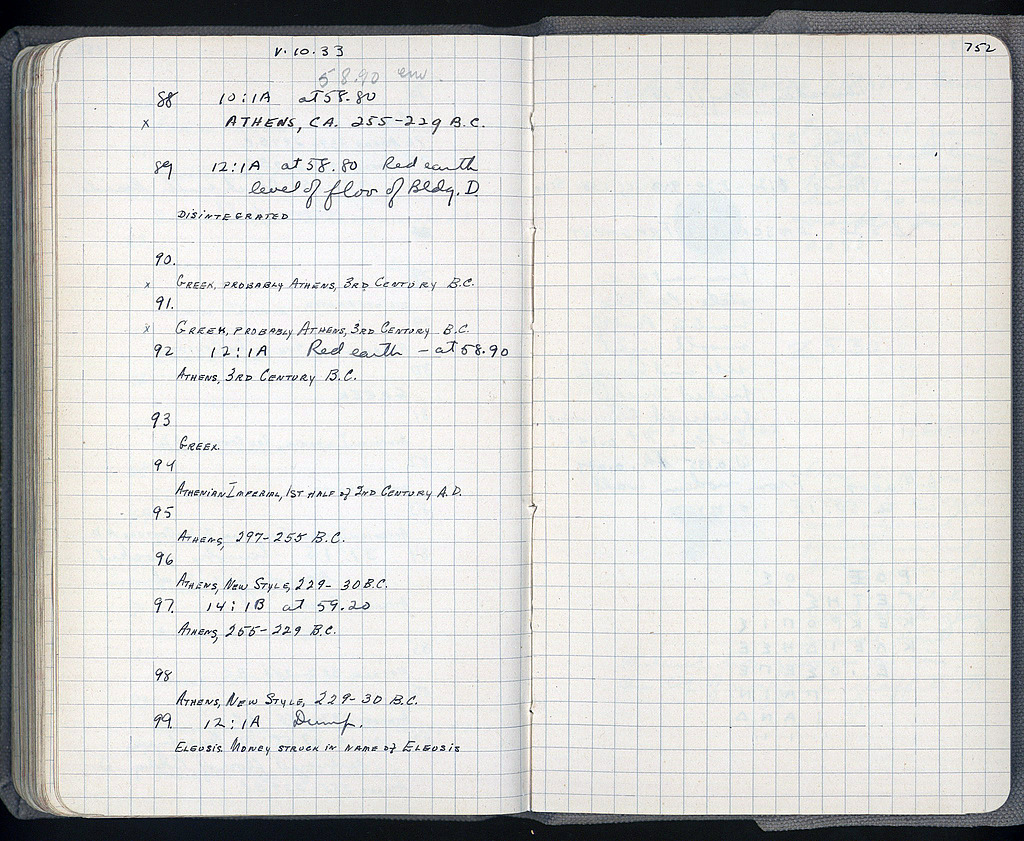 V.10.33
58.90 env.
88 10:1A at 58.80
x ATHENS, CA. 255-229 B.C.
89 12:1A at 58.80 Red earth
level of floor of Bldg. D.
DISINTEGRATED
90.
x GREEK, PROBABLY ATHENS, 3RD CENTURY B.C.
91.
x GREEK, PROBABLY ATHENS, 3RD CENTURY B.C.
92 12:1A Red earth - at 58.90
ATHENS, 3RD CENTURY B.C.
93
GREEK.
94
ATHENIAN IMPERIAL, 1ST HALF of 2ND CENTURY A.D.
95
ATHENS, 297-255 B.C.
96
ATHENS, NEW STYLE, 229-30 B.C.
97. 14:1B at 59.20
ATHENS, 255-229 B.C.
98
ATHENS, NEW STYLE, 229-30 B.C.
99. 12:1A Dump.
ELEUSIS. MONEY STRUCK IN NAME of ELEUSIS
752